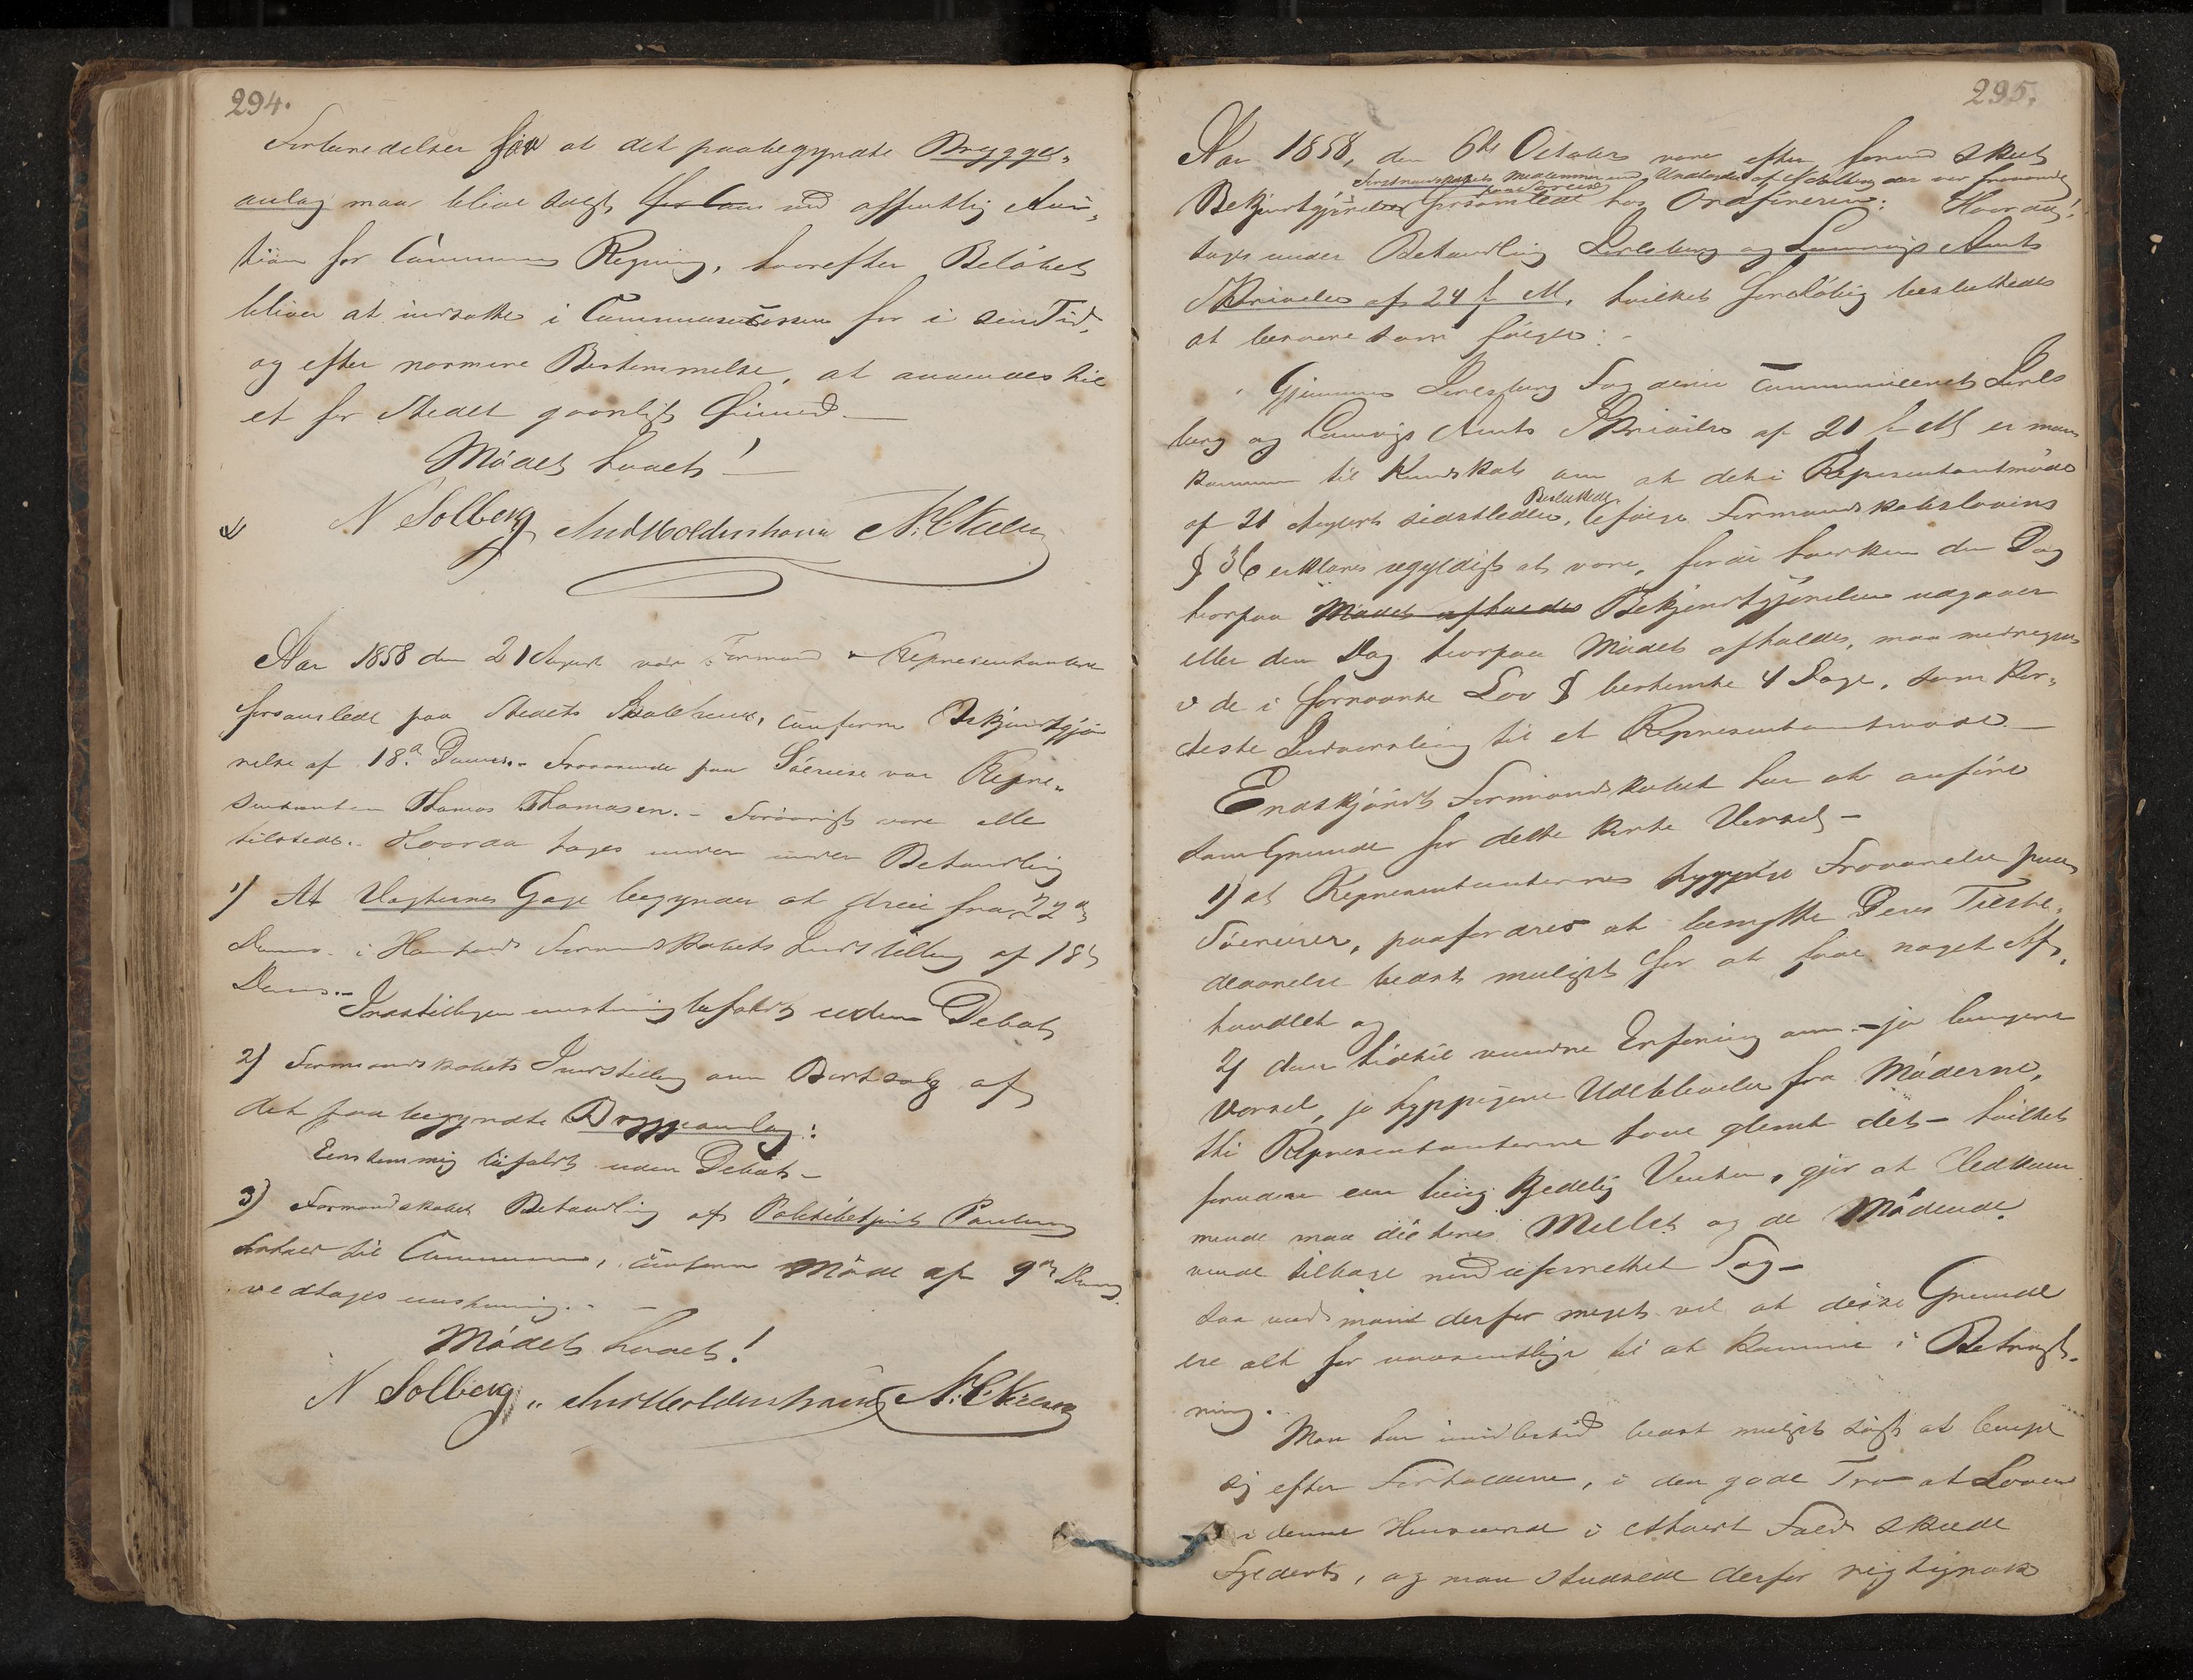 294.
Forberedelser for at det paabegyndte Brygge-
anlag maa blive solgt ved offentlig Auc-
tion for Communens Regning, hvorefter Beløbet
bliver at indsætte i Communecassen for i sin Tid,
og efter nærmere Bestemmelse, at anvendes til
et for Stedet gavnligt Øiemed.—
Mødet hævet!—
N Solberg And Holdershavn N. C. Nielsen
Aar 1858 den 21 August var Formænd & Repræsentantere
forsamlede paa Stedets Skolehuus, conform Bekjendtgjø
relse af 18de Dennes.- Fraværende paa Søreise var Repræ-
sentanten Thomas Thomasen.- Forøvrigt vare alle
tilstede.- Hvorda toges under under Behandling
1) At Vægternes Gage begynder at løbe fra 22de
Dennes i Henhold Formandskabets Indstilling af 18de
Dennes.-
Indstillingen eenstemmig bifaldt uden Debat
2) Formandskabets Indstilling om Bortsalg af
det paabegyndte Bryggeanlag:
Eenstemmig bifaldt uden Debat-
3) Formandskabets Behandling af Politibetjent Paulsens
Forhold til Communen, conform Møde af 9de Dennes
vedtoges eenstemmig.-
Mødet hævet!
N Solberg And Holdershavn N. C. Nielsen
295.
Aar 1858, den 6te October vare efter forud skeet
Formandskabets Medlemmer med Undtagelse af Holberg der var fraværende
paa Søreise
Bekjendtgjørelse forsamlede hos Ordføreren: Hvorda!
toges under Behandling Jarlsberg og Laurvigs Amts
Skrivelse af 24 f. M. hvilket foreløbig besluttedes
at besvare som følger:-
Gjennem Jarlsberg Fogderie communiceret Jarls
berg og Laurvigs Amts Skrivelse af 21 f. M er man
kommen til Kundskab om at det i Repræsentantmøde
Besluttede
af 21 August sidstleden, ifølge Formandskabslovens
§ 36 erklæres ugyldigt at være, fordi hverken den Dag
hvorpaa Mødet afholdes Bekjendtgjørelsen udgaaer
eller den Dag hvorpaa Mødet afholdes, maa medregnes
i de i fornævnte Lov § bestemte 4 Dage, som kor-
teste Indvarsling til et Repræsentantmøde.—
Endskjøndt Formandskabet har at anføre
som Grunde for dette korte Varsel-
1) at Repræsentanternes hyppige Fraværelse paa
Søreiser, paafordrer at benytte Deres Tilste-
deværelse bedst muligt for at faae noget Af-
handlet og
2) den hidtil vundne Erfaring om - jo længere
Varsel, jo hyppigere Udeblivelse fra Møderne,
thi Repræsentanterne have glemt det - hvilket
foruden en lang kjedelig Venten, gjør at Vedkom
mende maa dicteres Mulkt og de Mødende
vende tilbage med uforrettet Sag-
saa veed man derfor meget vel at disse Grunde
ere alt for uvæsentlige til at komme i Betragt-
ning.
Man har imidlertid bedst muligt søgt at lempe
sig efter Forholdene, i den gode Tro at Loven
i denne Henseende i ethvert Fald skede
Fyldest, og man studsede derfor rigtignok